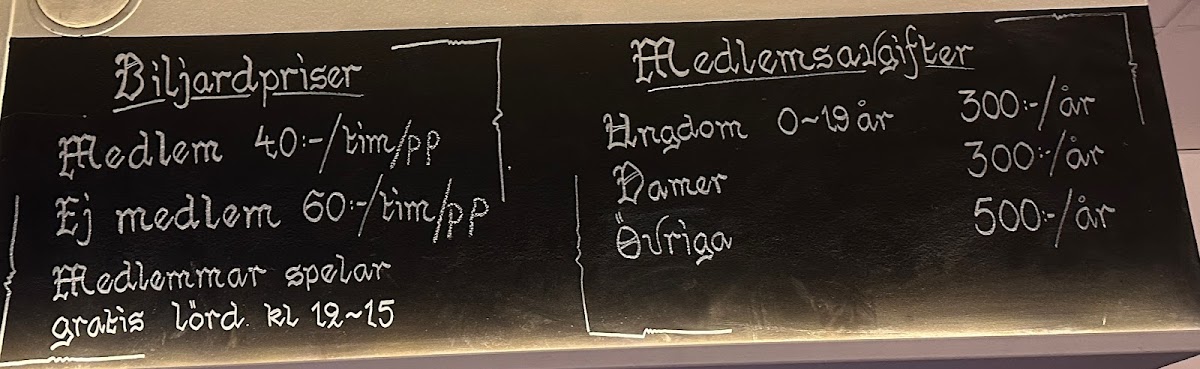 Biljardpriser
Medlem 40:-/tim/pp
Ej medlem 60:-/tim/pp
Medlemmar spelar
gratis lörd. kl 12~15
Medlemsavgifter
Ungdom 0~19 år 300:-/år
Damer 300:-/år
Övriga 500:-/år